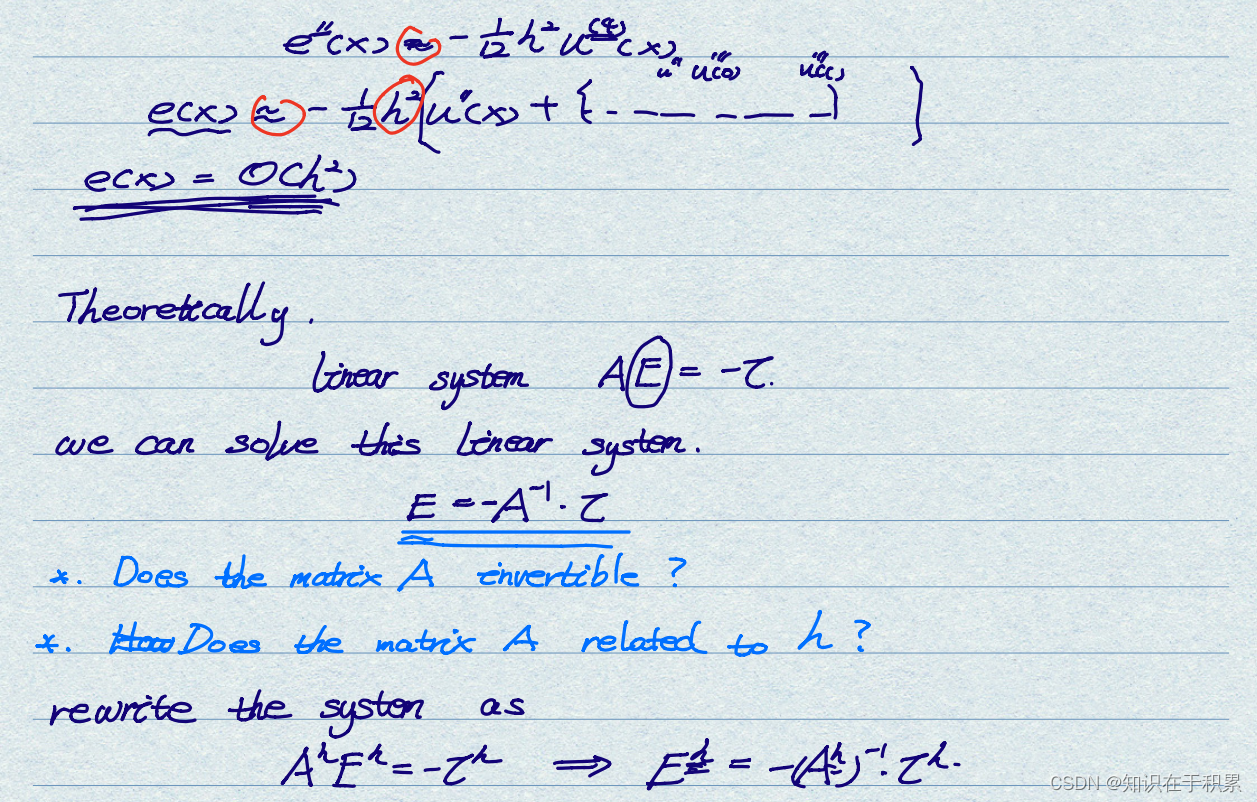 e''(x) ≈ -1/12 h² u⁽⁴⁾(x)
u'' u''(0) u''(1)
e(x) ≈ -1/12 h² [u''(x) + { - - — - — - } ]
e(x) = O(h²)
Theoretically.
linear system AE = -τ.
we can solve this linear system.
E = -A⁻¹ · τ
*. Does the matrix A invertible ?
*. How Does the matrix A related to h ?
rewrite the system as
AʰEʰ = -τʰ ⟹ Eʰ = -(Aʰ)⁻¹ · τʰ.
CSDN @知识在于积累